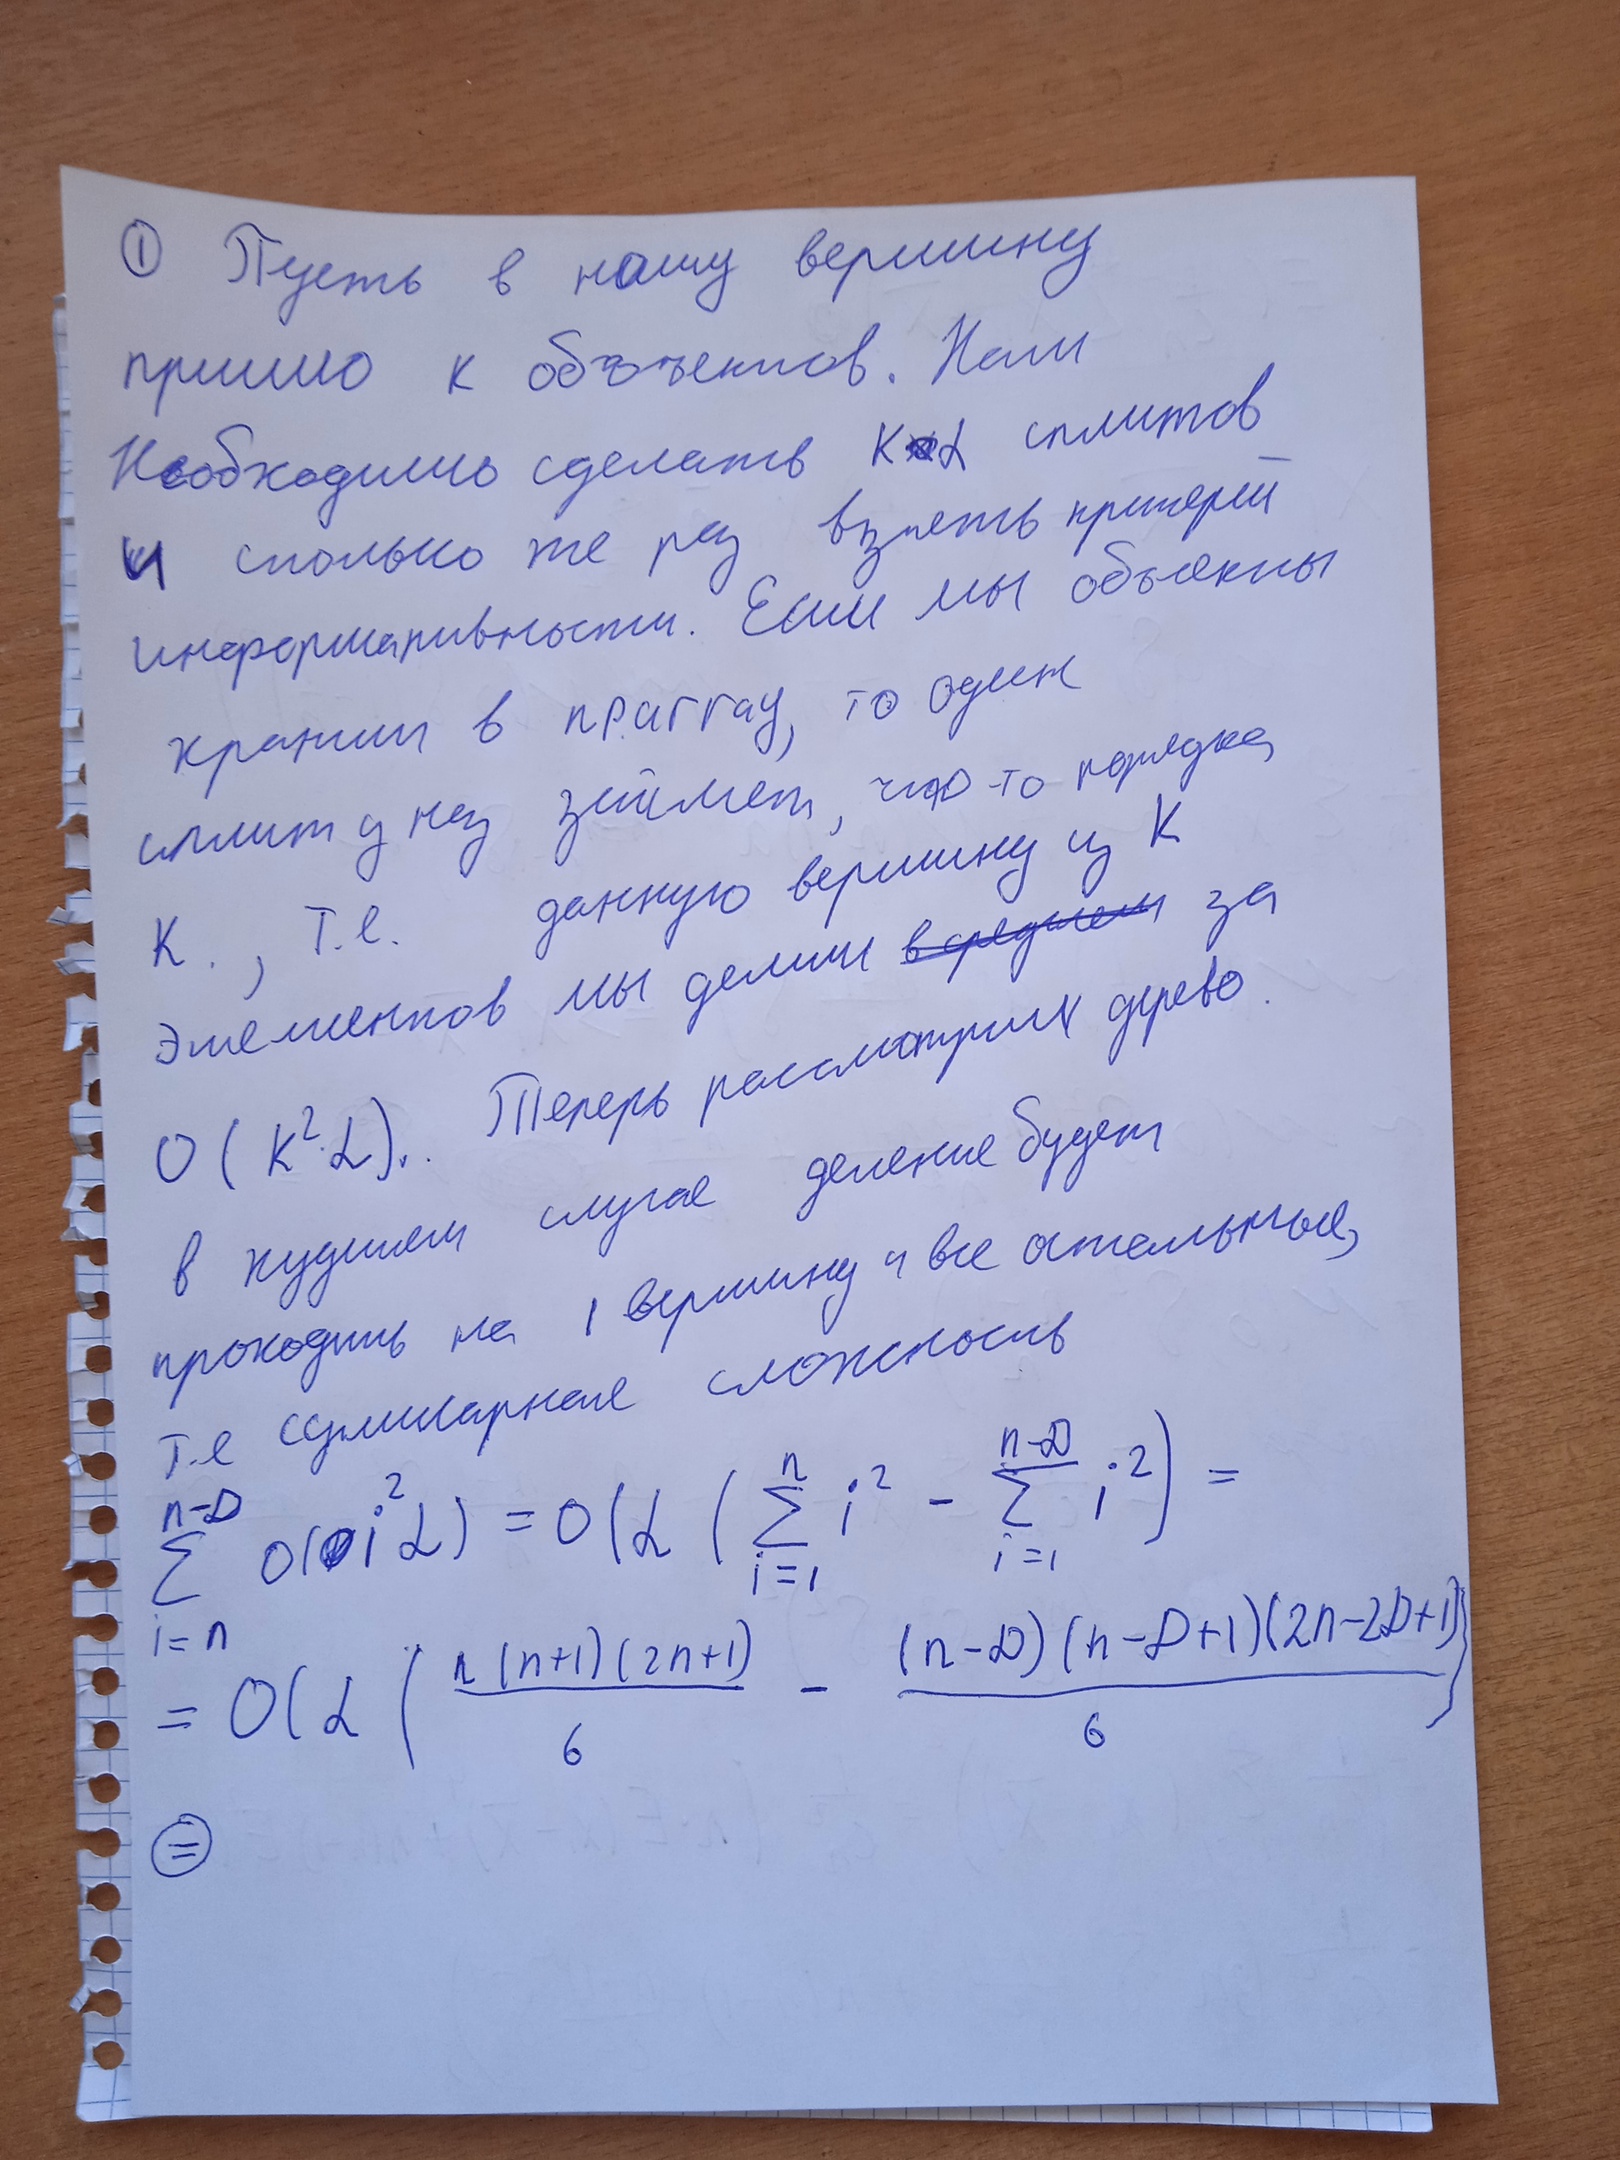 ① Пусть в нашу вершину
пришло K объектов. Нам
Необходимо сделать K L сплитов
и столько же раз взять критерий
информативности. Если мы объекты
храним в nparray, то один
сплит у нас займет, что-то порядка
K., т.е. данную вершину из K
элементов мы делим в среднем за
O(K²·L).. Теперь рассмотрим дерево.
в худшем случае деление будет
проходить на 1 вершину и все остальные,
т.е суммарная сложность
\sum_{i=n}^{n-D} O(i²L) = O(L(\sum_{i=1}^{n} i² - \sum_{i=1}^{n-D} i²) =
= O(L( \frac{n(n+1)(2n+1)}{6} - \frac{(n-D)(n-D+1)(2n-2D+1)}{6} )
=